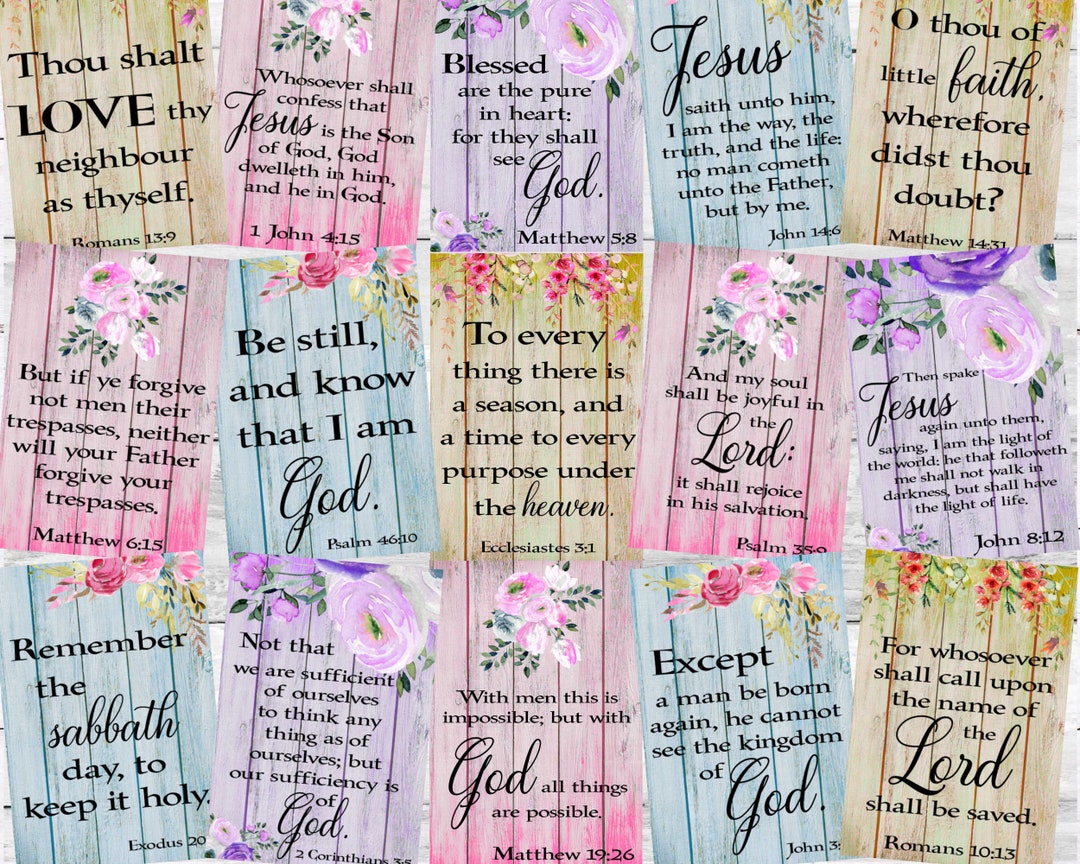 Thou shalt
LOVE thy
neighbour
as thyself.
Romans 13:9
Whosoever shall
confess that
Jesus is the Son
of God, God
dwelleth in him,
and he in God.
1 John 4:15
Blessed
are the pure
in heart:
for they shall
see God.
Matthew 5:8
Jesus
saith unto him,
I am the way, the
truth, and the life:
no man cometh
unto the Father,
but by me.
John 14:6
O thou of
little faith,
wherefore
didst thou
doubt?
Matthew 14:31
But if ye forgive
not men their
trespasses, neither
will your Father
forgive your
trespasses.
Matthew 6:15
Be still,
and know
that I am
God.
Psalm 46:10
To every
thing there is
a season, and
a time to every
purpose under
the heaven.
Ecclesiastes 3:1
And my soul
shall be joyful in
the
Lord:
it shall rejoice
in his salvation.
Psalm 35:9
Then spake
Jesus
again unto them,
saying, I am the light of
the world: he that followeth
me shall not walk in
darkness, but shall have
the light of life.
John 8:12
Remember
the
sabbath
day, to
keep it holy.
Exodus 20
Not that
we are sufficient
of ourselves
to think any
thing as of
ourselves; but
our sufficiency is
of
God.
2 Corinthians 3:5
With men this is
impossible; but with
God all things
are possible.
Matthew 19:26
Except
a man be born
again, he cannot
see the kingdom
of God.
John 3:
For whosoever
shall call upon
the name of
the
Lord
shall be saved.
Romans 10:13